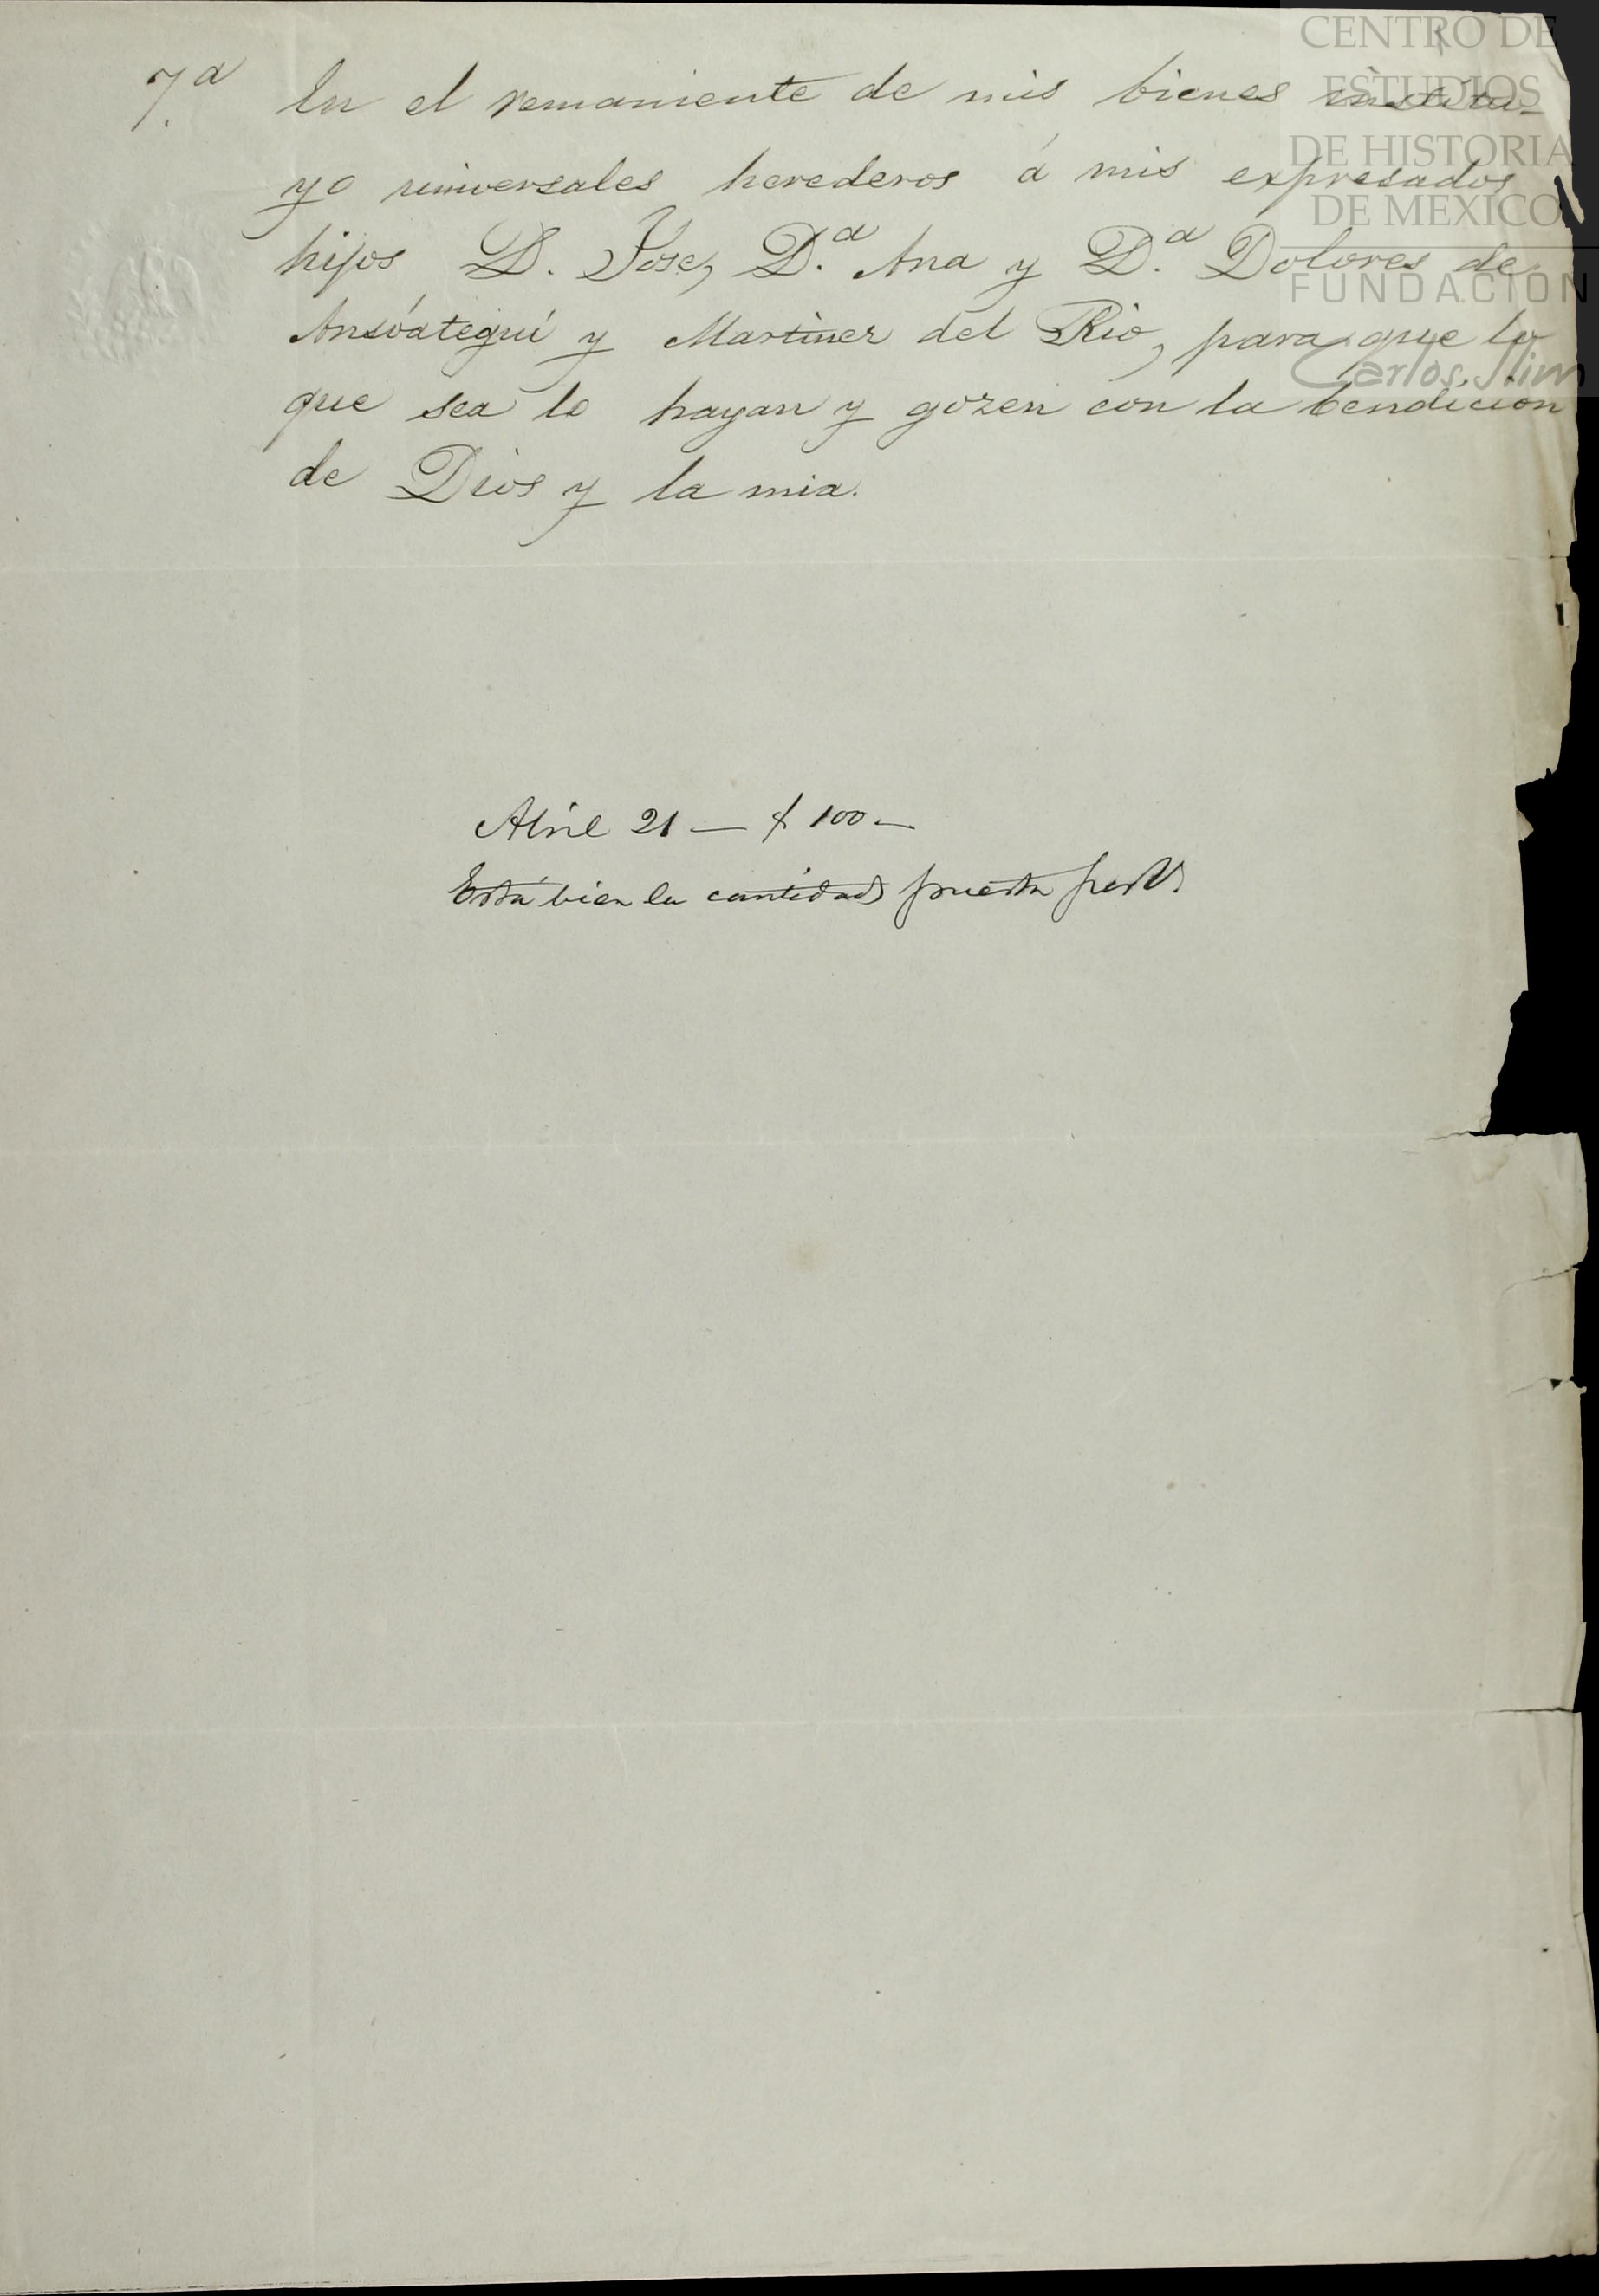 CENTRO DE
ESTUDIOS
DE HISTORIA
DE MEXICO
FUNDACIÓN
Carlos Slim
7.ª En el remaniente de mis bienes institu-
yo universales herederos á mis expresados
hijos D. Jose, D.ª Ana y D.ª Dolores de
Ansóategui y Martinez del Rio, para que lo
que sea lo hayan y gozen con la bendicion
de Dios y la mia.
Abril 21 — $ 100 —
Está bien la cantidad puesta por V.